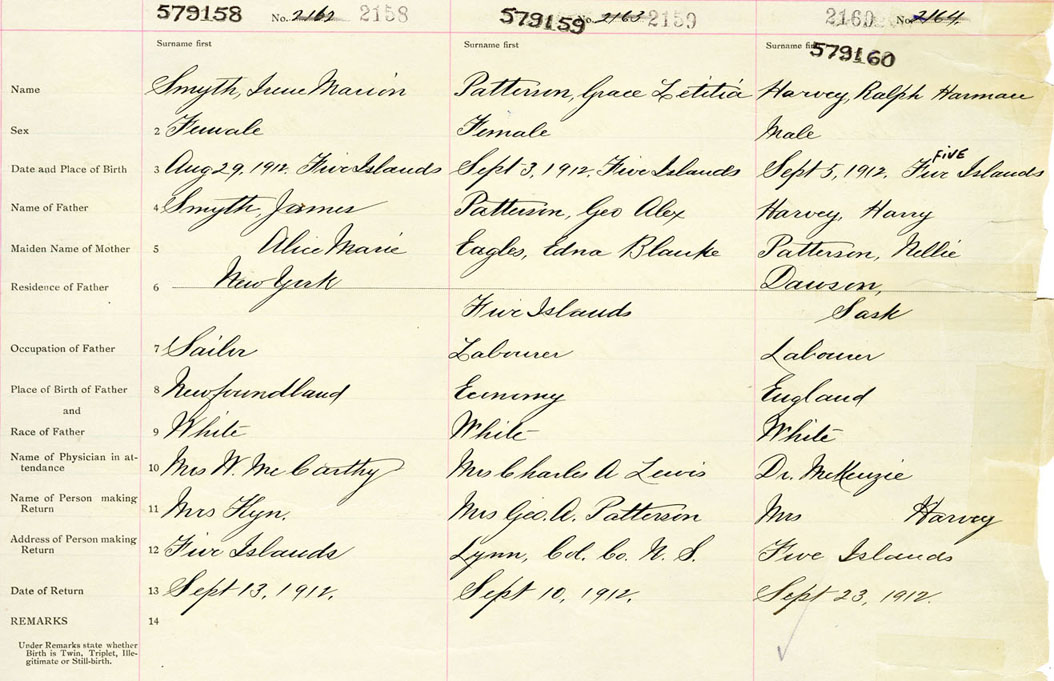 579158 No. 2162 2158 579159 No. 2163 2159 2160 No. 2164
Surname first Surname first Surname first 579160
Name Smyth, Irene Marion Patterson, Grace Letitia Harvey, Ralph Harman
Sex 2 Female Female Male
FIVE
Date and Place of Birth 3 Aug 29, 1912. Five Islands Sept 3, 1912. Five Islands Sept 5, 1912. Five Islands
Name of Father 4 Smyth, James Patterson, Geo Alex Harvey, Harry
Maiden Name of Mother 5 Alice Marie Eagles, Edna Blanke Patterson, Nellie
Residence of Father 6 New York Dawson,
Five Islands Sask
Occupation of Father 7 Sailor Labourer Labourer
Place of Birth of Father 8 Newfoundland Economy England
and
Race of Father 9 White White White
Name of Physician in at-
tendance 10 Mrs W. McCarthy Mrs Charles A Lewis Dr. McKenzie
Name of Person making
Return 11 Mrs Mrs Geo. A. Patterson Mrs Harvey
Address of Person making
Return 12 Five Islands Lynn, Col. Co. N. S. Five Islands
Date of Return 13 Sept 13, 1912. Sept 10, 1912. Sept 23, 1912.
REMARKS 14
Under Remarks state whether
Birth is Twin, Triplet, Ille-
gitimate or Still-birth.